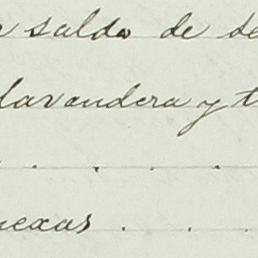 saldo de
lavandera y
. . . .
nexas . . .